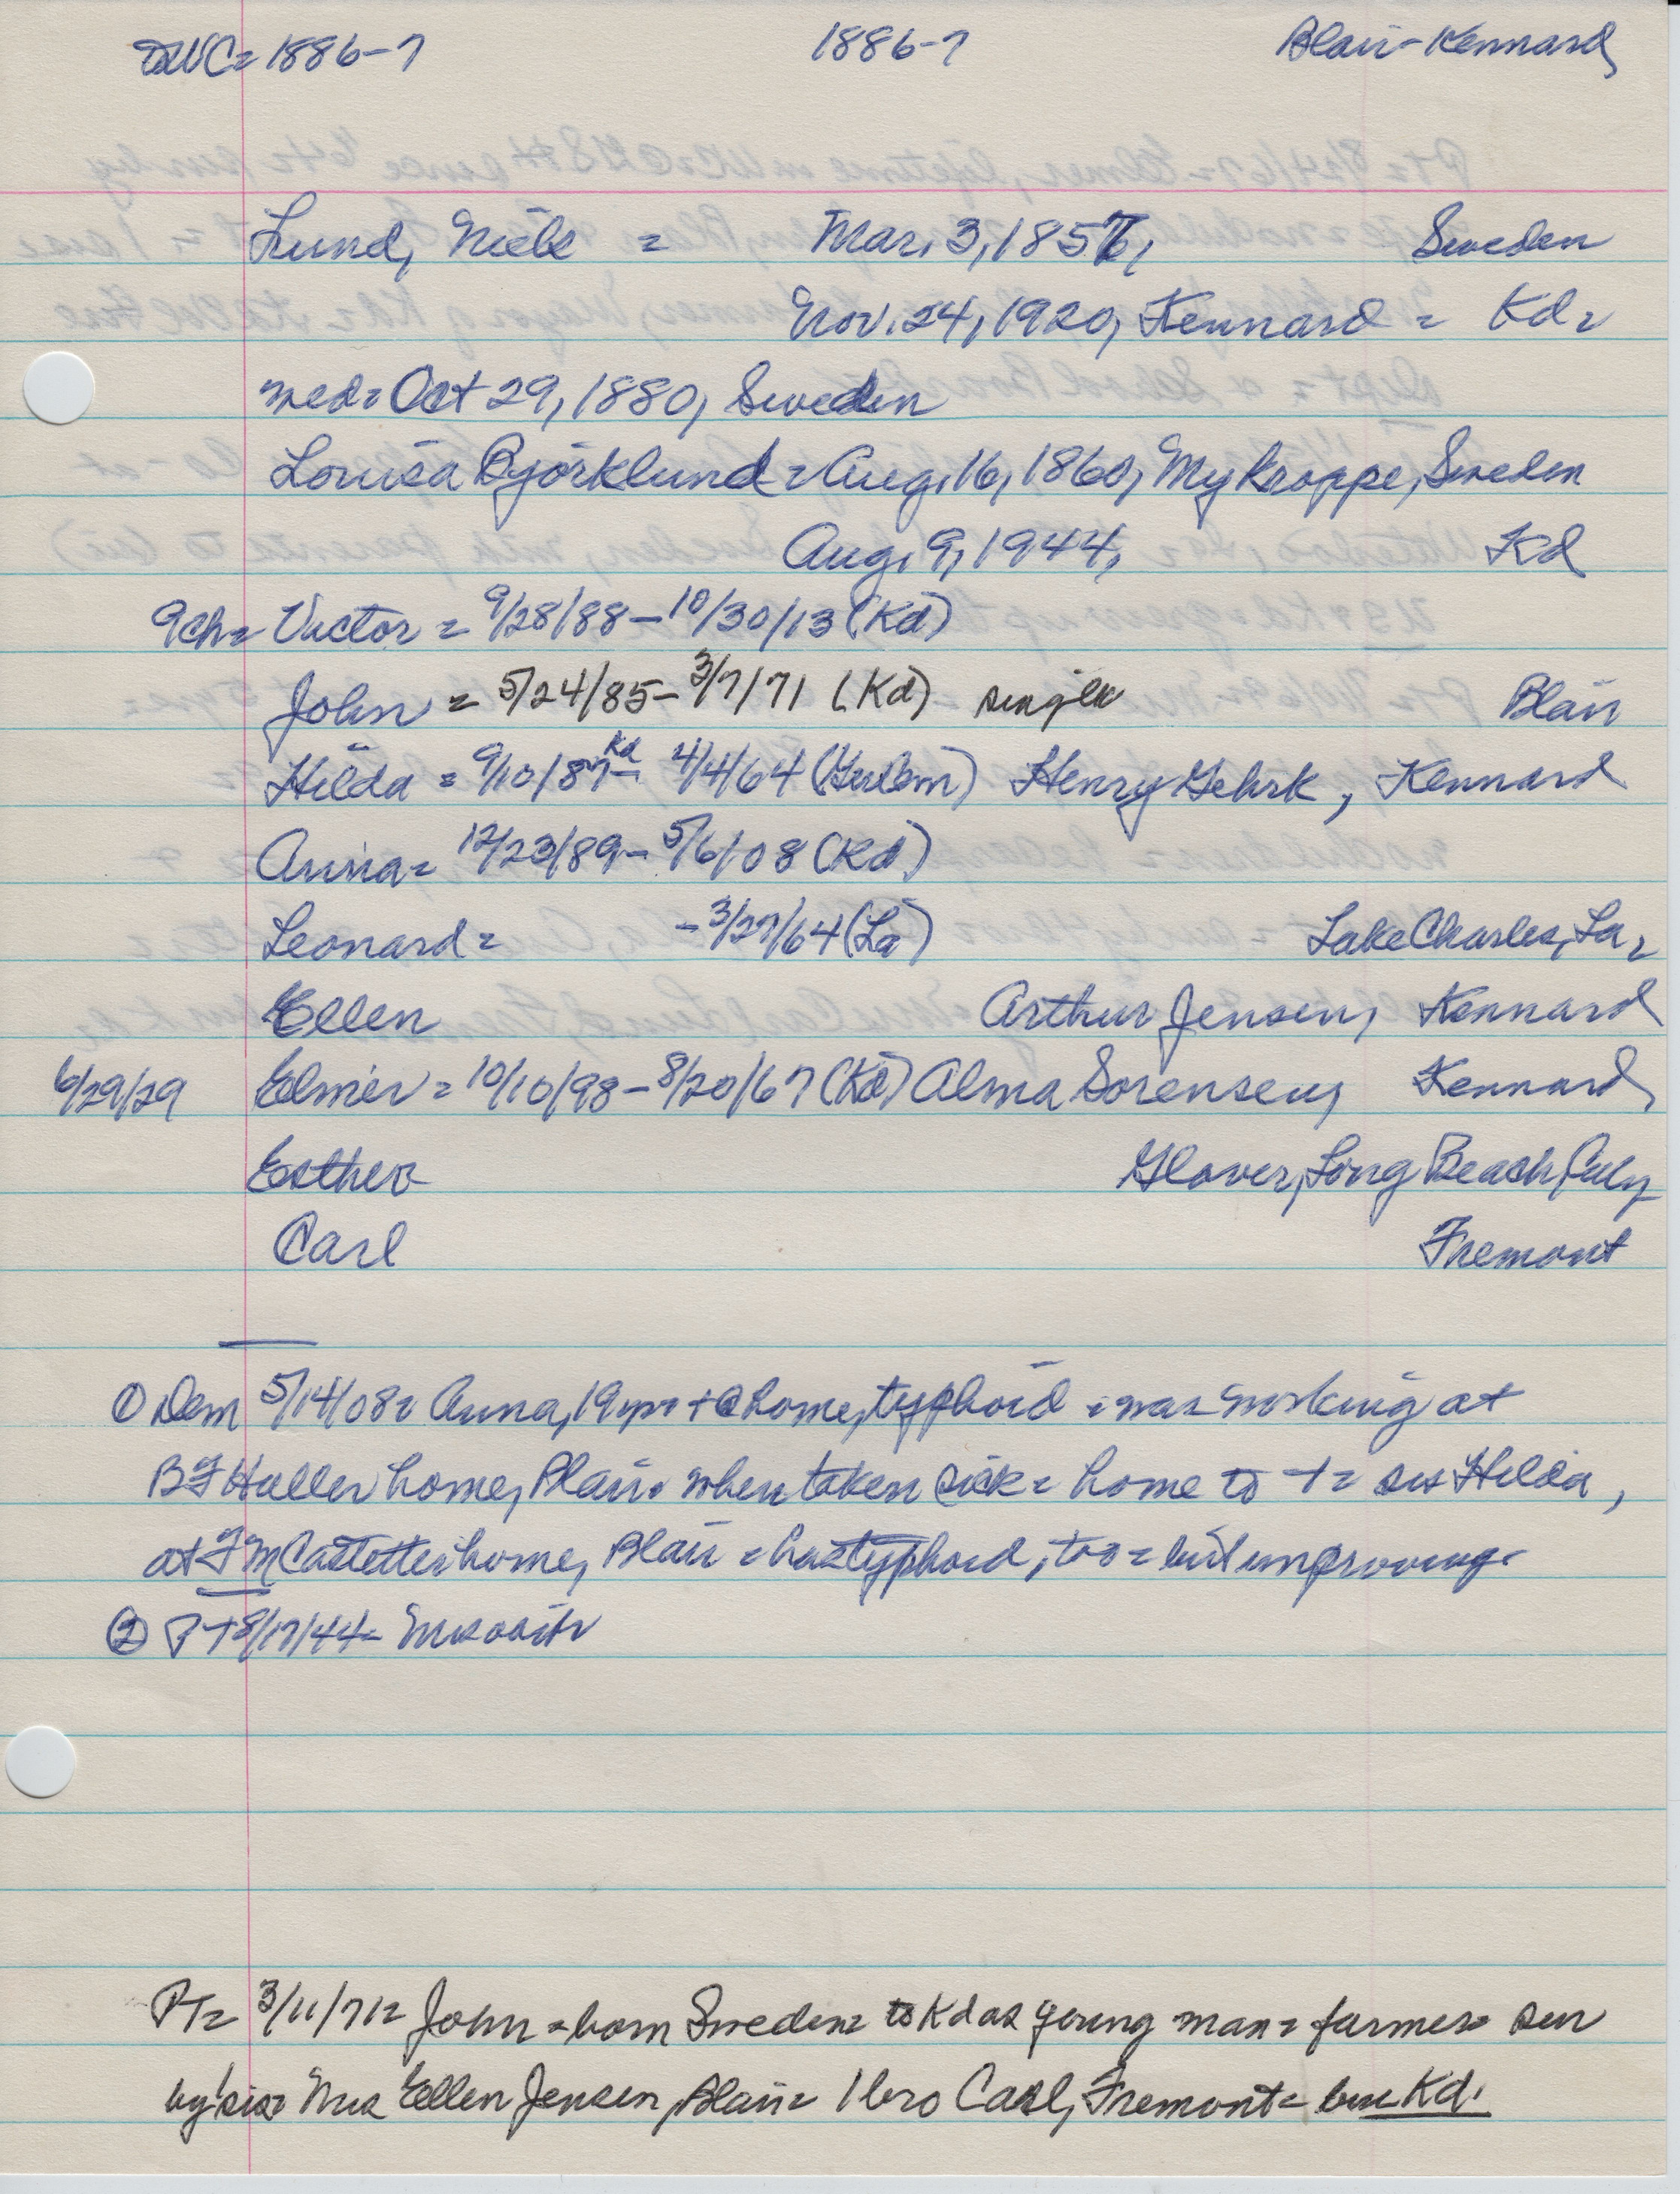 DWC= 1886-7 1886-7 Blair-Kennard
Lund, Niels = Mar. 3, 1857, Sweden
Nov. 24, 1920, Kennard = Kd=
med= Oct 29, 1880, Sweden
Louisa Björklund = Aug. 16, 1860, Mykroppe, Sweden
Aug. 9, 1944, Kd
9ch= Victor = 9/28/88-10/30/13 (Kd)
John = 5/24/85-3/7/71 (Kd) single Blair
Hilda = 9/10/87 Kd - 4/4/64 Henry Gehrk, Kennard
Anna= 12/23/89- 5/6/08 (Kd)
Leonard= -3/27/64 (La) Lake Charles, La=
Ellen Arthur Jensen, Kennard
6/29/29 Elmer = 10/10/98-8/20/67 (Kd) Alma Sorensen, Kennard
Esther Glover, Long Beach
Carl Fremont
① Dem 5/14/08= Anna, 19 yrs + @ home, typhoid = was working at
BF Haller home, Blair. when taken sick = home to + = sis Hilda,
at FM Castetter home, Blair = has typhoid, too = but improving.
② PT 8/17/44=
PT= 3/11/71= John = born Sweden= to Kd as young man = farmer= sur
by sis= Mrs Ellen Jensen, Blair= 1 bro Carl, Fremont= bur Kd.